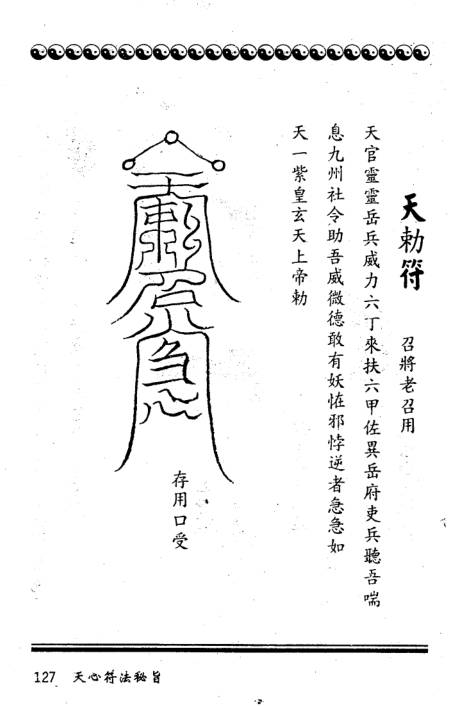 天勅符 召將老召用
天官靈靈岳兵威力六丁來扶六甲佐異岳府吏兵聽吾喘
息九州社令助吾威微德敢有妖恠邪悖逆者急急如
天一紫皇玄天上帝勅
存用口受
127 天心符法秘旨